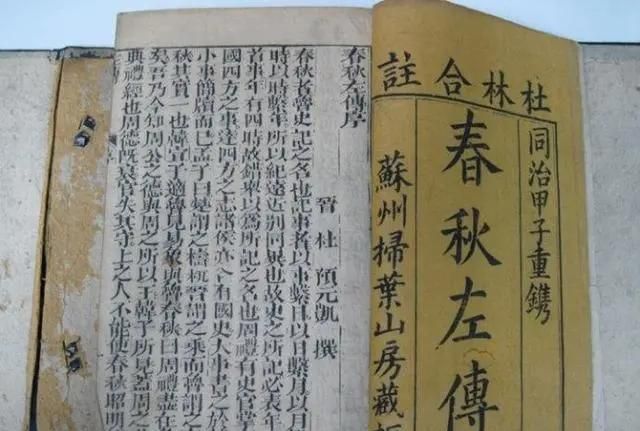 杜林合註
同治甲子重鐫
春秋左傳
蘇州掃葉山房藏
春秋左傳序
晉杜預元凱撰
春秋者魯史記之名也記事者以事繫日以日繫月以月
時以時繫年所以紀遠近別同異也故史之所記必表年
首事年有四時故錯舉以爲所記之名也周禮有史官掌
國四方之事達四方之志諸侯亦各有國史大事書之於
小事簡牘而已孟子曰楚謂之檮杌晉謂之乘而魯謂之
秋其實一也韓宣子適魯見易象與魯春秋曰周禮盡在
矣吾乃今知周公之德與周之所以王韓子所見蓋周之
典禮經也周德既衰官失其守上之人不能使春秋昭明